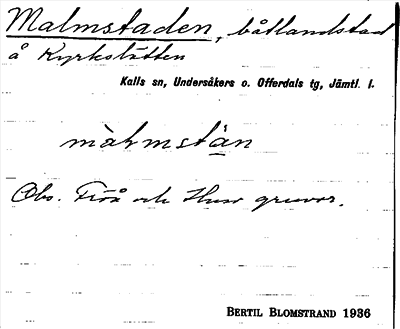 Malmstaden, båtlandstad
å Kyrkslätten
Kalls sn, Undersåkers o. Offerdals tg, Jämtl. l.
màlmstän
Obs. Fröå och Huso gruvor.
BERTIL BLOMSTRAND 1936